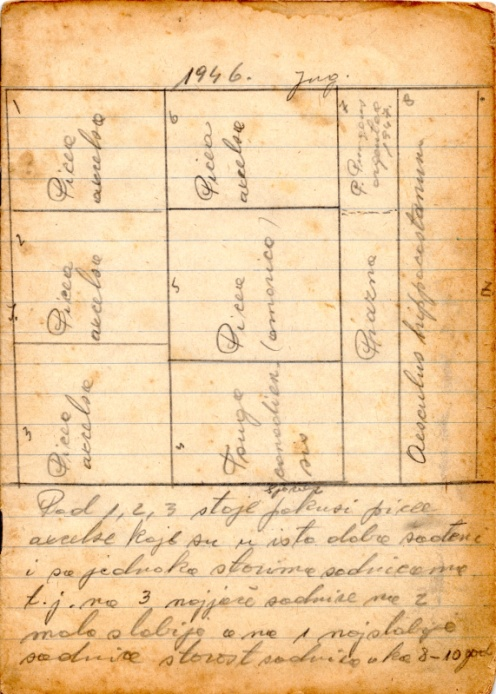 1946. Jug.
1 Picea excelsa
2 Picea excelsa
3 Picea excelsa
6 Picea excelsa
5 Picea (omorica)
4 Tsuga canadien sis
7 P. Pungens argentea 1947.
Prazna
8 Aesculus hippocastanum
sjever
Pod 1, 2, 3 stoje pokusi picee
excelse koje su u isto doba sađene
i sa jednako starima sadnicama
t. j. na 3 najjače sadnice na 2
malo slabije a na 1 najslabije
sadnice starost sadnica oko 8-10 god.